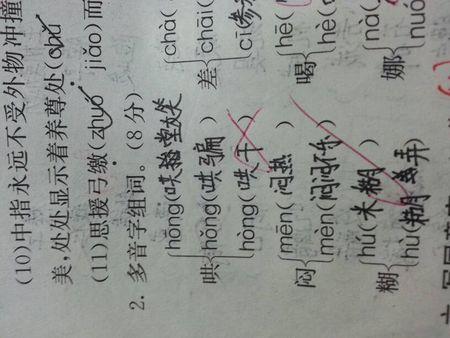 (10)中指永远不受外物冲撞
美,处处显示着养尊处(chǔ
(11)思援弓缴(zhuó jiǎo)而
2. 多音字组词。(8分)
hōng(哄堂大笑 chà(
哄 hǒng(哄骗) 差 chāi(
hòng(哄) cī(参
闷 mēn(闷热) 喝 hē(
mèn(闷闷不乐) hè(
糊 hú(米糊) 娜 nà(
hù(糊弄) nuó